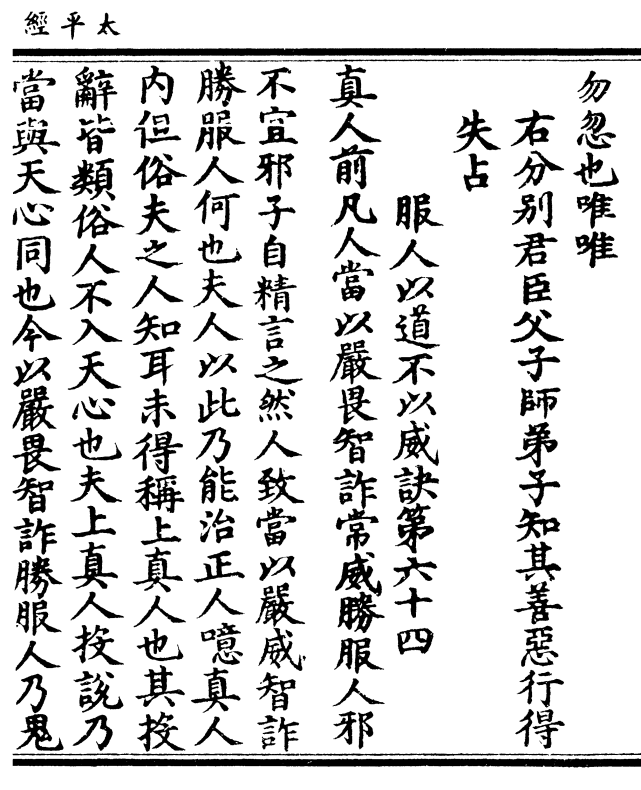 太平經
勿忽也唯唯
右分别君臣父子師弟子知其善惡行得
失占
服人以道不以威訣第六十四
真人前凡人當以嚴畏智詐常威勝服人邪
不宜邪子自精言之然人致當以嚴威智詐
勝服人何也夫人以此乃能治正人噫真人
内但俗夫之人知耳未得稱上真人也其投
辭皆類俗人不入天心也夫上真人投說乃
當與天心同也今以嚴畏智詐勝服人乃鬼